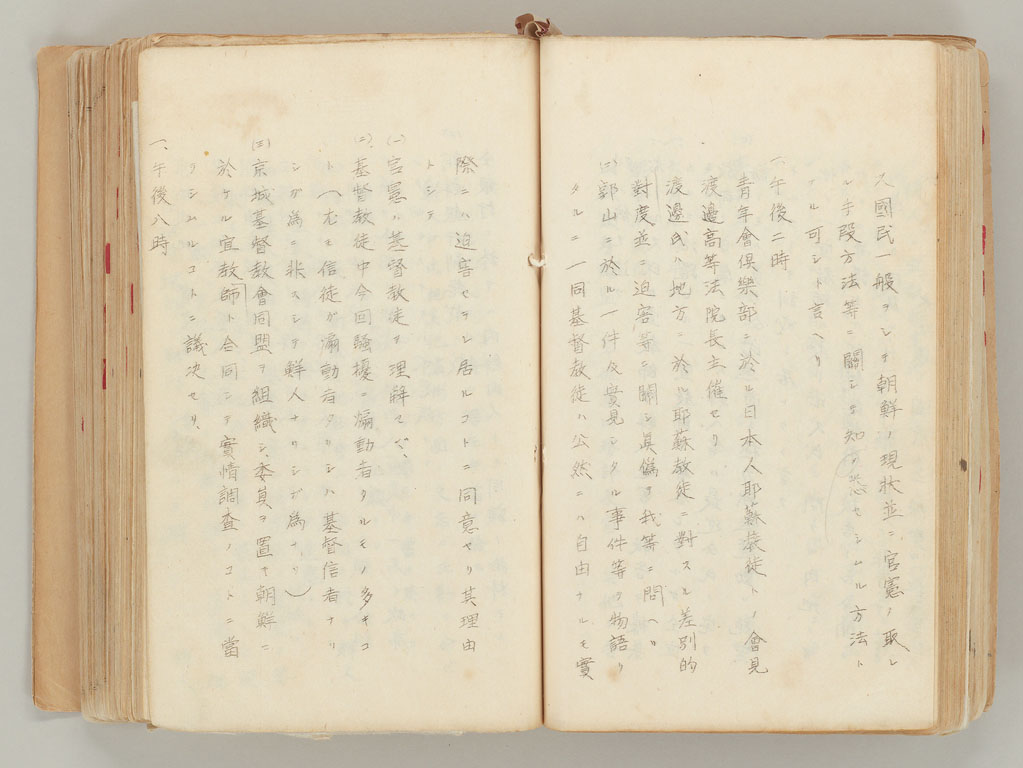 ス國民一般ヲシテ朝鮮ノ現狀並ニ官憲ノ取レ
ル手段方法等ニ關シテ知悉セシムル方法ト
アル可シト言ヘリ
一、午後二時
青年會倶樂部ニ於ル日本人耶蘇敎徒トノ會見
渡邊高等法院長主催セリ
渡邊氏ハ地方ニ於ル耶蘇敎徒ニ對スル差別的
對度並ニ迫害等ニ關シ眞僞ヲ我等ニ問ヘリ
(二)郭山ニ於ル一件及實見シタル事件等ヲ物語リ
タルニ一同基督敎徒ハ公然ニハ自由ナルモ實
際ニハ迫害セラレ居ルコトニ同意セリ其理由
トシテ
(一)官憲ハ基督敎徒ヲ理解セズ、
(二)基督敎徒中今回騷擾ニ煽動者タルモノ多キコ
ト(尤モ信徒ガ煽動者タリシハ基督信者ナリ
シガ爲ニ非スシテ鮮人ナリシガ爲ナリ)
(三)京城基督敎會同盟ヲ組織シ、委員ヲ置キ朝鮮ニ
於ケル宣敎師ト合同シテ實情調査ノコトニ當
ラシムルコトニ議決セリ、
一、午後八時